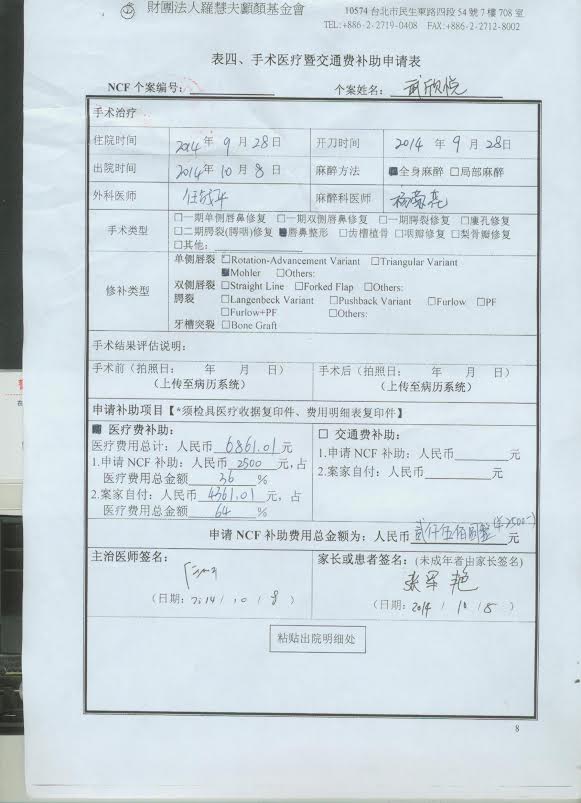 財團法人羅慧夫顱顏基金會
10574 台北市民生東路四段 54 號 7 樓 708 室
TEL:+886-2-2719-0408 FAX:+886-2-2712-8002
表四、手术医疗暨交通费补助申请表
NCF 个案编号: 个案姓名: 武欣悦
手术治疗
住院时间 2014 年 9 月 28 日 开刀时间 2014 年 9 月 28 日
出院时间 2014 年 10 月 8 日 麻醉方法 ■全身麻醉 □局部麻醉
外科医师 麻醉科医师
手术类型 □一期单侧唇鼻修复 □一期双侧唇鼻修复 □一期腭裂修复 □廔孔修复
□二期腭裂(腭咽)修复 ■唇鼻整形 □齿槽植骨 □咽瓣修复 □梨骨瓣修复
□其他:
修补类型 单侧唇裂 □Rotation-Advancement Variant □Triangular Variant
■Mohler □Others:
双侧唇裂 □Straight Line □Forked Flap □Others:
腭裂 □Langenbeck Variant □Pushback Variant □Furlow □PF
□Furlow+PF □Others:
牙槽突裂 □Bone Graft
手术结果评估说明:
手术前（拍照日: 年 月 日） 手术后（拍照日: 年 月 日）
（上传至病历系统） （上传至病历系统）
申请补助项目【*须检具医疗收据复印件、费用明细表复印件】
■ 医疗费补助: □ 交通费补助:
医疗费用总计: 人民币 6861.01 元
1.申请 NCF 补助: 人民币 2500 元, 占 1.申请 NCF 补助: 人民币 元
医疗费用总金额 36 % 2.案家自付: 人民币 元
2.案家自付: 人民币 4361.01 元, 占
医疗费用总金额 64 %
申请 NCF 补助费用总金额为: 人民币 贰仟伍佰圆整(¥2500-) 元
主治医师签名: 家长或患者签名: (未成年者由家长签名)
张军艳
（日期: 2014 / 10 / 8 ） （日期: 2014 / 10 / 8 ）
粘贴出院明细处
8